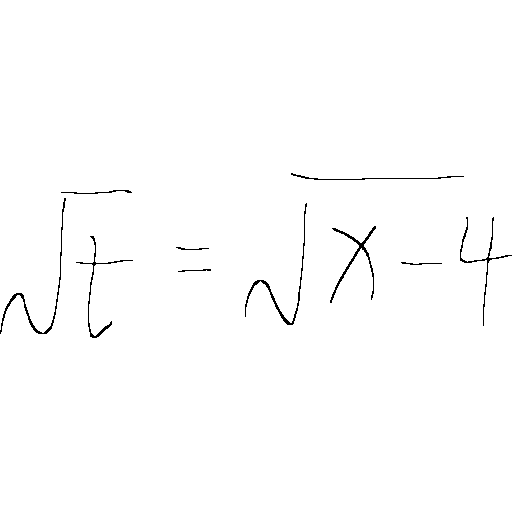 √t = √(x-4)